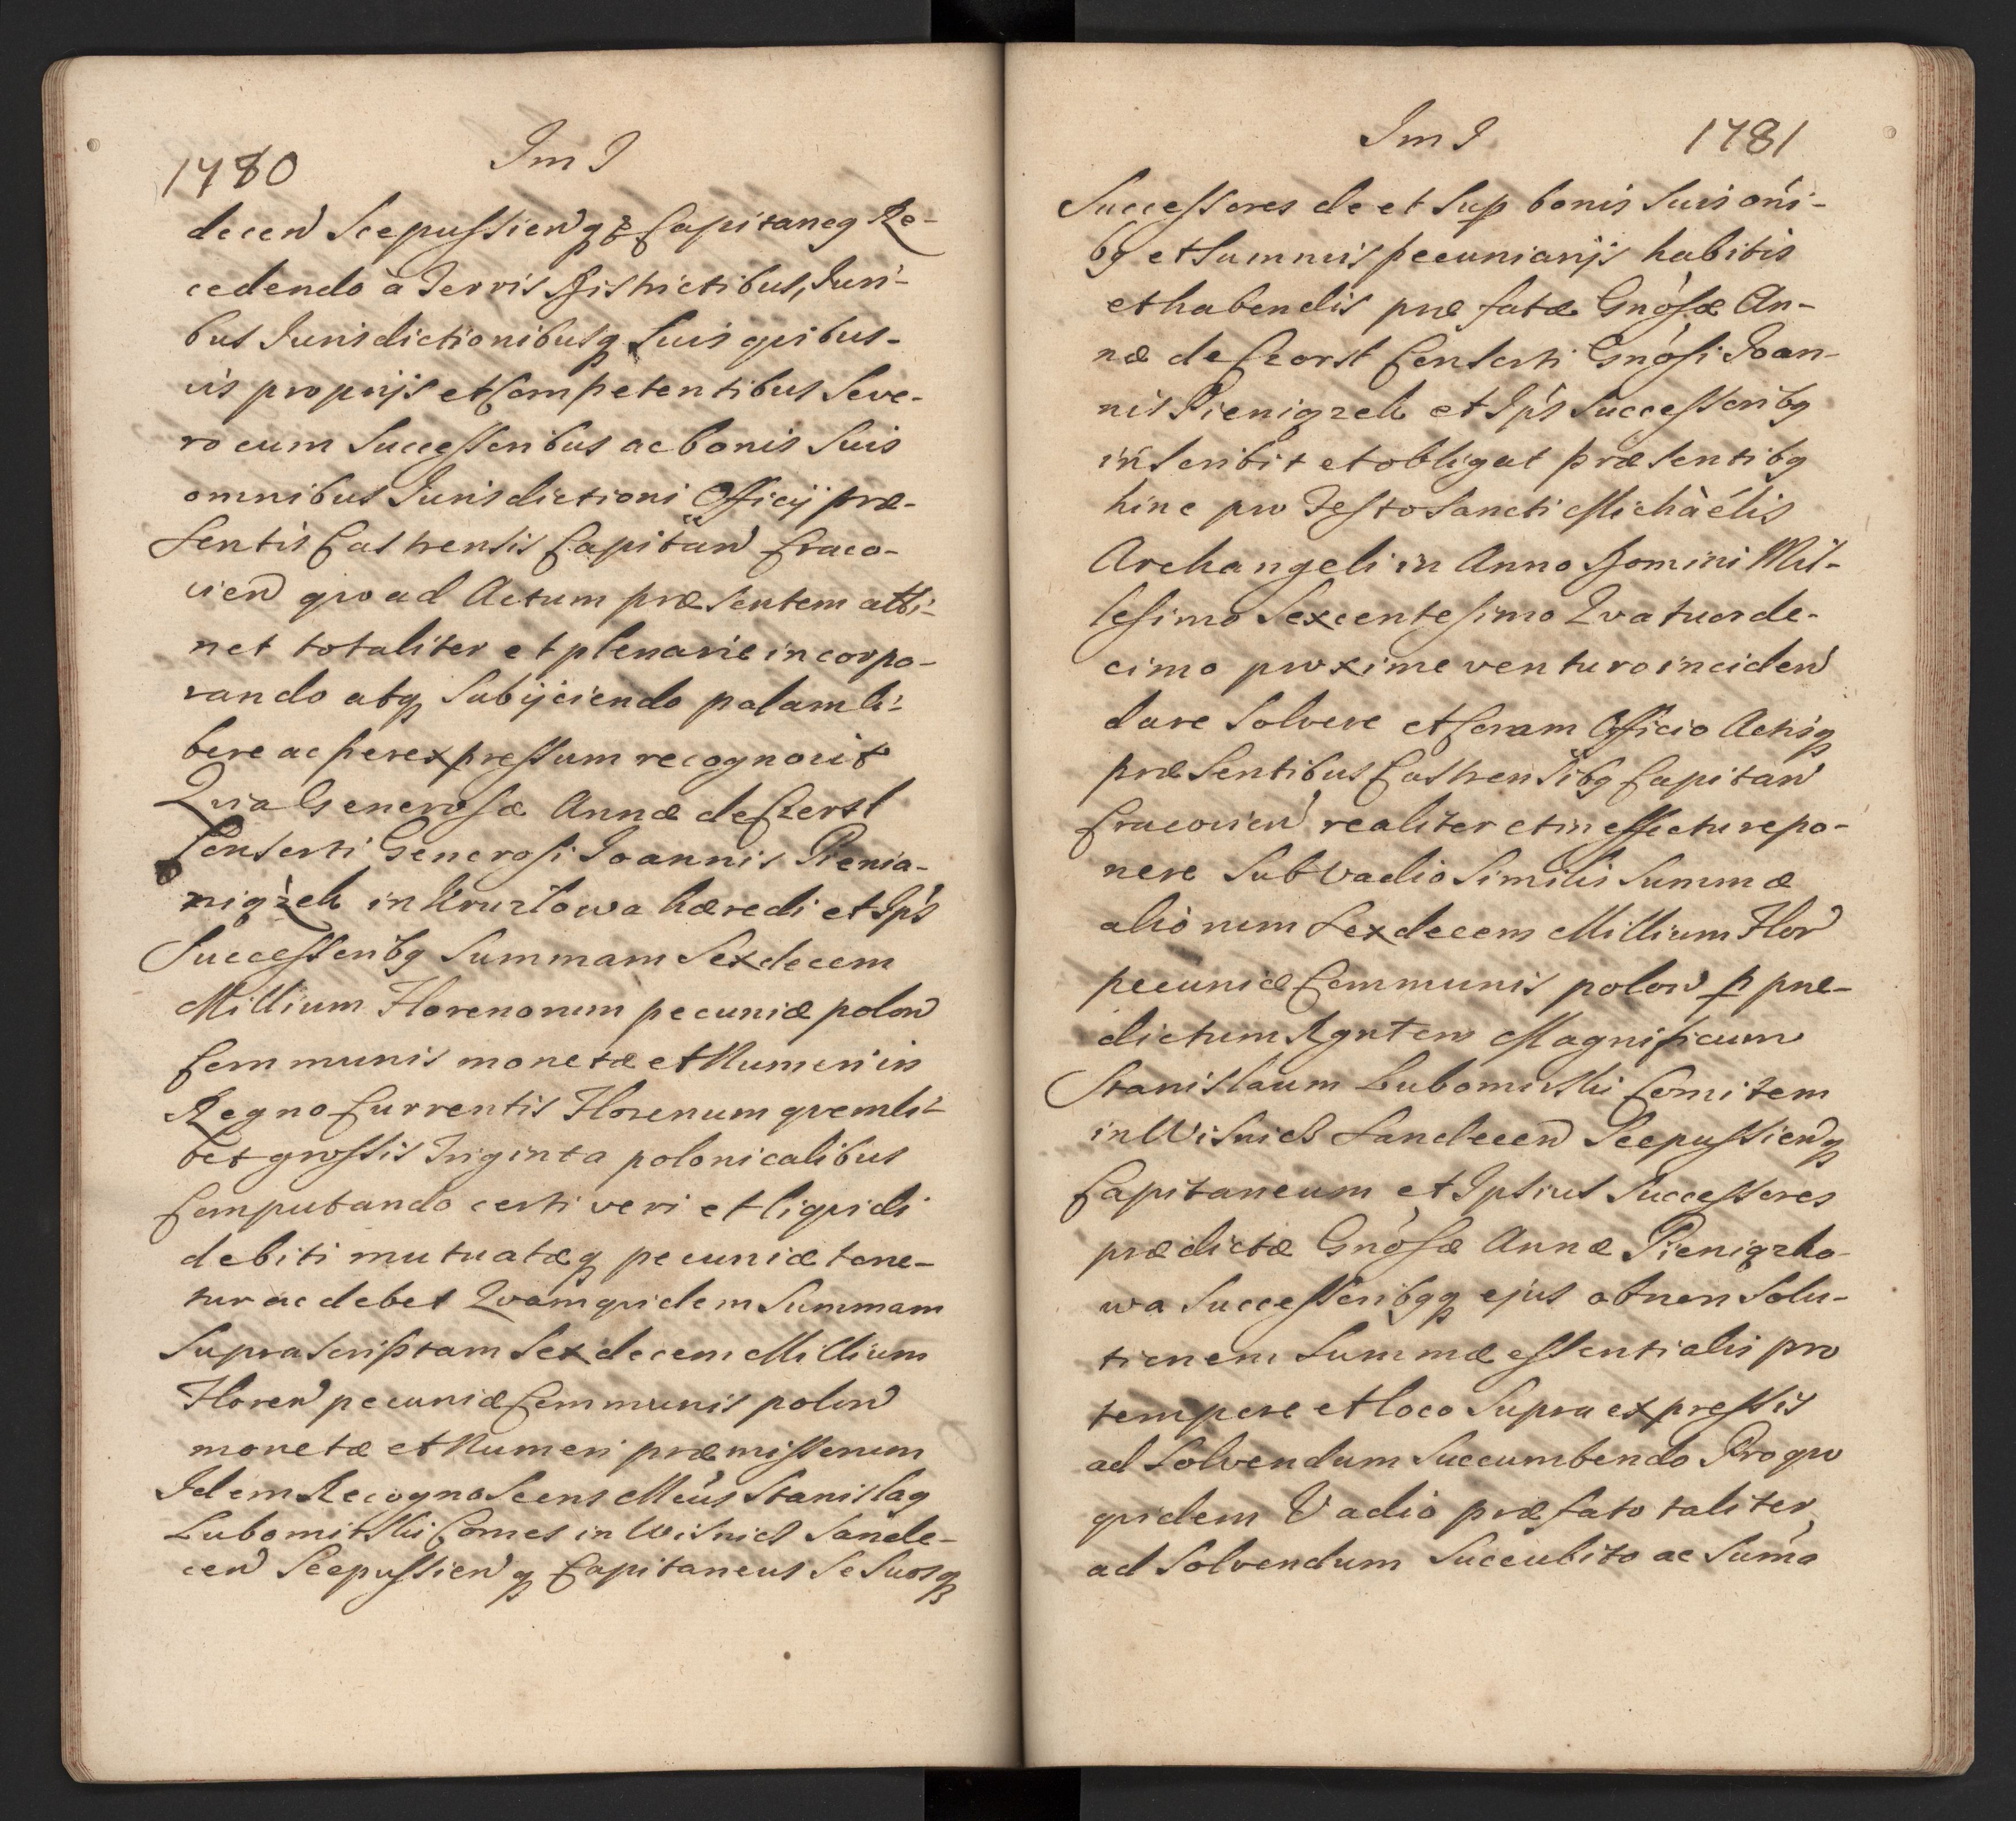 1780
Im I
decen Scepussienq & Capitaneq Re-
cedendo à Terris Districtibus, Juri-
bus Jurisdictionibusq Suis quibus-
vis proprijs et Competentibus Seve-
ro cum Successoribus ac bonis Suis
omnibus Jurisdictioni Officij præ-
sentis Castrensis Capitan Craco-
vien quoad Actum præsentem atti-
net totaliter et plenarie incorpo-
rando atq Subijciendo palam li-
bere ac per expressum recognovit
Quia Generosæ Annæ de Czerst
Consorti Generosi Joannis Pienia-
niązek in Kruzlowa hæredi et Ips
Successoribq Summam Sexdecem
Millium Florenorum pecuniæ polon
Communis monetæ et Numeri in
Regno Currentis Florenum quemli-
bet grossis Triginta polonicalibus
Computando certi veri et liquidi
debiti mutuatæq pecuniæ tene-
tur ac debet Quamquidem Summam
Suprascriptam Sexdecem Millium
Floren pecuniæ Communis polon
monetæ et Numeri præmissorum
Idem Recognoscens Mcus Stanislaq
Lubomirski Comes in Wisnicz Sande-
cen Scepussienq Capitaneus Se Suosq
Im I
1781
Successores de et Sup bonis Suis oni-
bq et Summis pecuniarijs habitis
et habendis præfatæ Gnosæ An-
næ de Czorst Consorti Gnosi Joan-
nis Pieniązek et Ips Successoribq
inscribit et obligat præsentibq
hinc pro Festo Sancti Michàélis
Archangeli in Anno Domini Mil-
lesimo Sexcentesimo Quatuorde-
cimo proxime venturo inciden
dare Solvere et Coram Officio Actisq
præsentibus Castrensibq Capitan
Cracovien realiter et in effectu repo-
nere Sub Vadio Similis Summæ
aliorum Sexdecem Millium Flor
pecuniæ Communis polon p præ-
dictum Rgntem Magnificum
Stanislaum Lubomirski Comitem
in Wisnicz Sandecen Scepussienq
Capitaneum et Ipsius Successores
prædictæ Gnosæ Annæ Pieniązko-
wa Successoribqq ejus ob non Solu-
tionem Summæ essentialis pro
tempore et loco Supra expressis
ad Solvendum Succumbendo Pro quo
quidem Vadio præfato taliter
ad Solvendum Succubito ac Suma